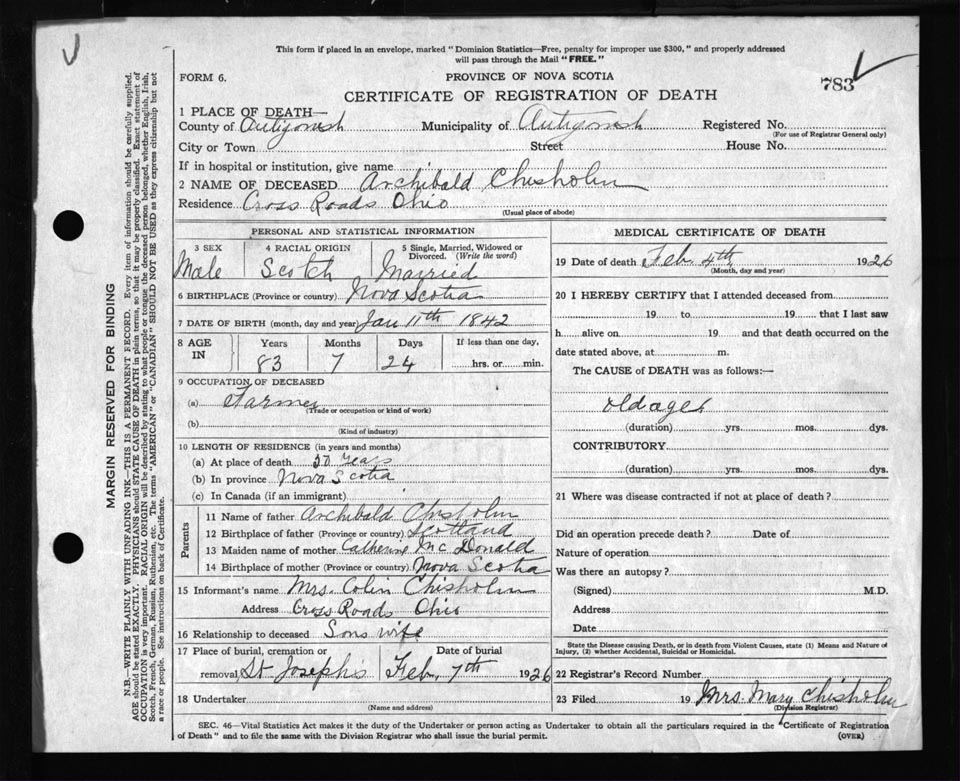 This form if placed in an envelope, marked "Dominion Statistics—Free, penalty for improper use $300," and properly addressed
will pass through the Mail "FREE."
FORM 6.
PROVINCE OF NOVA SCOTIA
783
CERTIFICATE OF REGISTRATION OF DEATH
1 PLACE OF DEATH—
County of Antigonish Municipality of Antigonish Registered No.
(For use of Registrar General only)
City or Town Street House No.
If in hospital or institution, give name
2 NAME OF DECEASED Archibald Chisholm
Residence Cross Roads Ohio
(Usual place of abode)
PERSONAL AND STATISTICAL INFORMATION
3 SEX 4 RACIAL ORIGIN 5 Single, Married, Widowed or
Divorced. (Write the word)
Male Scotch Married
6 BIRTHPLACE (Province or country) Nova Scotia
7 DATE OF BIRTH (month, day and year) Jan 11th 1842
8 AGE IN Years Months Days If less than one day,
83 7 24 hrs. or min.
9 OCCUPATION OF DECEASED
(a) Farmer
(Trade or occupation or kind of work)
(b)
(Kind of industry)
10 LENGTH OF RESIDENCE (in years and months)
(a) At place of death years
(b) In province Nova Scotia
(c) In Canada (if an immigrant)
Parents
11 Name of father Archibald Chisholm
12 Birthplace of father (Province or country) Scotland
13 Maiden name of mother Catherine Mc Donald
14 Birthplace of mother (Province or country) Nova Scotia
15 Informant's name Mrs. Colin Chisholm
Address Cross Roads Ohio
16 Relationship to deceased Sons wife
17 Place of burial, cremation or Date of burial
removal St Joseph's Feb. 7th 1926
18 Undertaker
(Name and address)
MEDICAL CERTIFICATE OF DEATH
19 Date of death Feb. 4th 1926
(Month, day and year)
20 I HEREBY CERTIFY that I attended deceased from
19 to 19 that I last saw
h alive on 19 and that death occurred on the
date stated above, at m.
The CAUSE of DEATH was as follows:—
old age
(duration) yrs. mos. dys.
CONTRIBUTORY
(duration) yrs. mos. dys.
21 Where was disease contracted if not at place of death?
Did an operation precede death? Date of
Nature of operation
Was there an autopsy?
(Signed) M.D.
Address
Date
State the Disease causing Death, or in death from Violent Causes, state (1) Means and Nature of
Injury, (2) whether Accidental, Suicidal or Homicidal.
22 Registrar's Record Number
23 Filed 19 Mrs. Mary Chisholm
(Division Registrar)
SEC. 46—Vital Statistics Act makes it the duty of the Undertaker or person acting as Undertaker to obtain all the particulars required in the "Certificate of Registration
of Death" and to file the same with the Division Registrar who shall issue the burial permit.
(OVER)
MARGIN RESERVED FOR BINDING
N.B.—WRITE PLAINLY WITH UNFADING INK—THIS IS A PERMANENT RECORD. Every item of information should be carefully supplied.
AGE should be stated EXACTLY. PHYSICIANS should STATE CAUSE OF DEATH in plain terms, so that it may be properly classified. Exact statement of
OCCUPATION is very important. RACIAL ORIGIN will be described by stating to what people or tongue the deceased person belonged, whether English, Irish,
Scotch, French, German, Russian, Ruthenian, etc. The terms "AMERICAN" or "CANADIAN" SHOULD NOT BE USED as they express citizenship but not
a race or people. See instructions on back of Certificate.